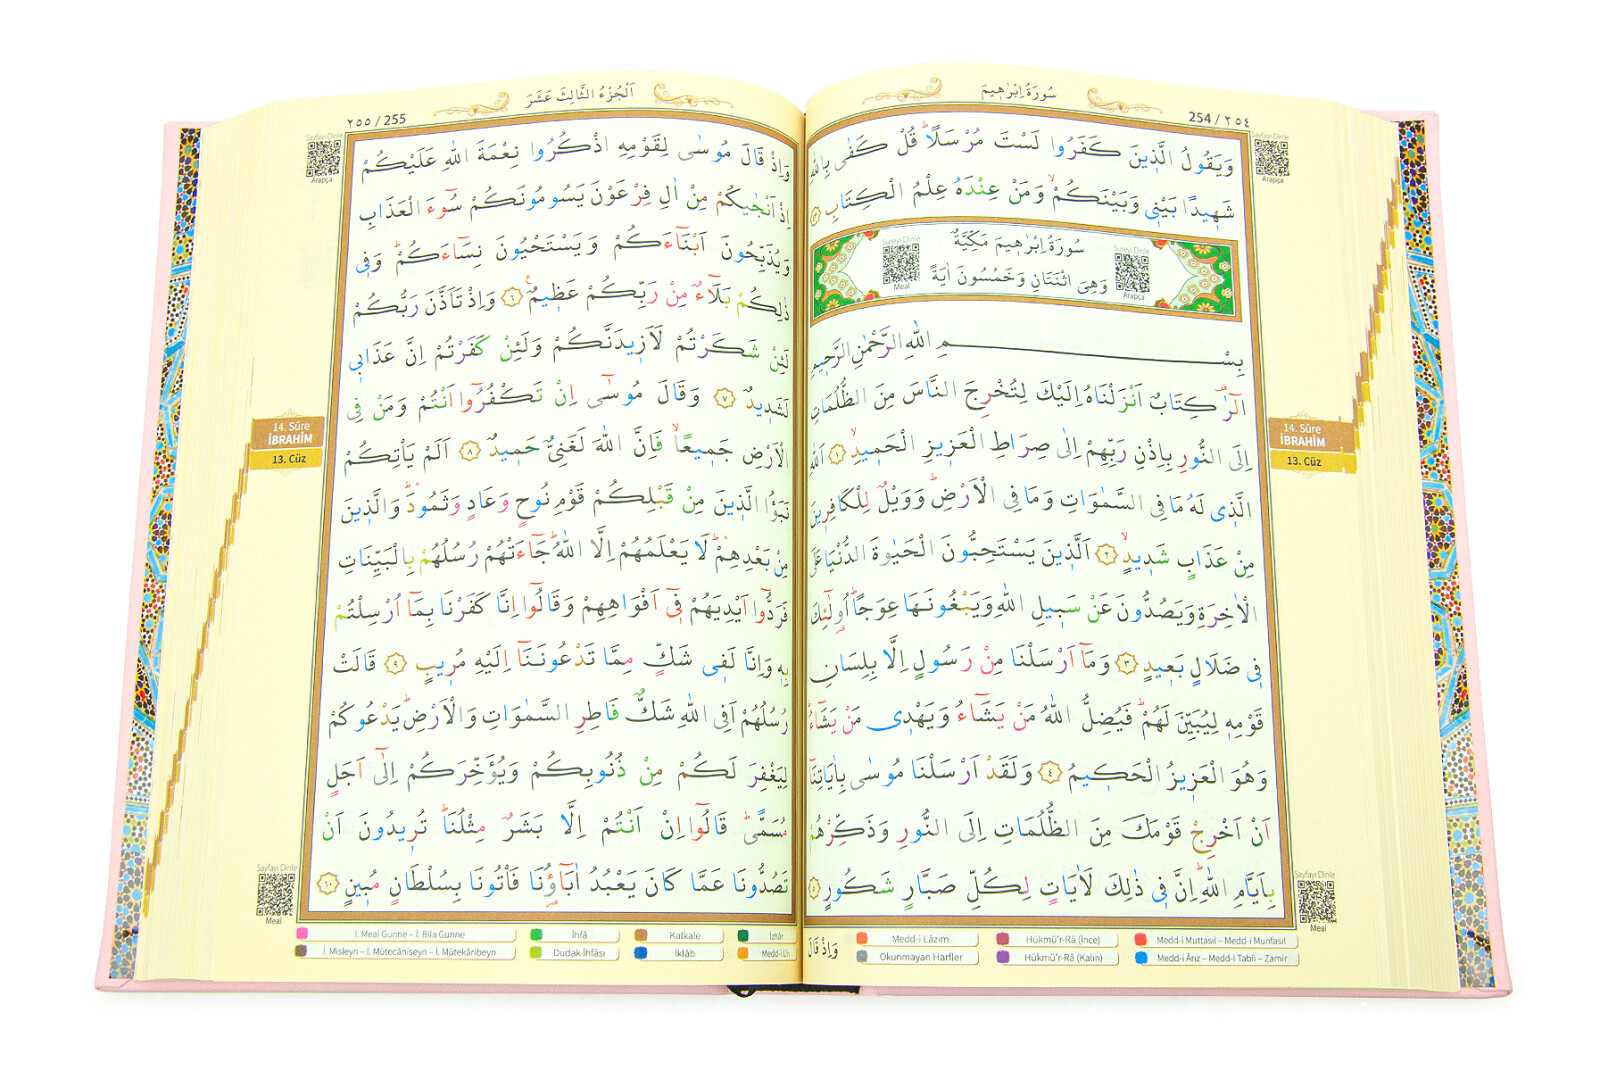 سُورَةُ اِبْرٰهٖيمَ
254 / ٢٥٤
Sayfayı Dinle
Arapça
وَيَقُولُ الَّذٖينَ كَفَرُوا لَسْتَ مُرْسَلًاؕ قُلْ كَفٰى بِاللّٰهِ
شَهٖيدًا بَيْنٖى وَبَيْنَكُمْۙ وَمَنْ عِنْدَهُ عِلْمُ الْكِتَابِ ﴿٤٣﴾
Sureyi Dinle
Meal
سُورَةُ اِبْرٰهٖيمَ مَكِّيَّةٌ
وَهِىَ اثْنَتَانِ وَخَمْسُونَ اٰيَةً
Sureyi Dinle
Arapça
بِسْمِ اللّٰهِ الرَّحْمٰنِ الرَّحٖيمِ
الٓرٰࣞ كِتَابٌ اَنْزَلْنَاهُ اِلَيْكَ لِتُخْرِجَ النَّاسَ مِنَ الظُّلُمَاتِ
اِلَى النُّورِ بِاِذْنِ رَبِّهِمْ اِلٰى صِرَاطِ الْعَزٖيزِ الْحَمٖيدِۙ ﴿١﴾ اَللّٰهِ
الَّذٖى لَهُ مَا فِى السَّمٰوَاتِ وَمَا فِى الْاَرْضِؕ وَوَيْلٌ لِلْكَافِرٖينَ
مِنْ عَذَابٍ شَدٖيدٍۙ ﴿٢﴾ اَلَّذٖينَ يَسْتَحِبُّونَ الْحَيٰوةَ الدُّنْيَا عَلَى
الْاٰخِرَةِ وَيَصُدُّونَ عَنْ سَبٖيلِ اللّٰهِ وَيَبْغُونَهَا عِوَجًاؕ اُولٰٓئِكَ
فٖى ضَلَالٍ بَعٖيدٍ ﴿٣﴾ وَمَٓا اَرْسَلْنَا مِنْ رَسُولٍ اِلَّا بِلِسَانِ
قَوْمِهٖ لِيُبَيِّنَ لَهُمْؕ فَيُضِلُّ اللّٰهُ مَنْ يَشَٓاءُ وَيَهْدٖى مَنْ يَشَٓاءُؕ
وَهُوَ الْعَزٖيزُ الْحَكٖيمُ ﴿٤﴾ وَلَقَدْ اَرْسَلْنَا مُوسٰى بِاٰيَاتِنَٓا
اَنْ اَخْرِجْ قَوْمَكَ مِنَ الظُّلُمَاتِ اِلَى النُّورِ وَذَكِّرْهُمْ
بِاَيَّامِ اللّٰهِؕ اِنَّ فٖى ذٰلِكَ لَاٰيَاتٍ لِكُلِّ صَبَّارٍ شَكُورٍ ﴿٥﴾
14. Sûre
İBRAHİM
13. Cüz
Sayfayı Dinle
Meal
وَاِذْ قَالَ
Medd-i Lâzım
Hükmü'r-Râ (İnce)
Medd-i Muttasıl – Medd-i Munfasıl
Okunmayan Harfler
Hükmü'r-Râ (Kalın)
Medd-i Ârız – Medd-i Tabîî – Zamir
اَلْجُزْءُ الثَّالِثَ عَشَرَ
٢٥٥ / 255
Sayfayı Dinle
Arapça
وَاِذْ قَالَ مُوسٰى لِقَوْمِهِ اذْكُرُوا نِعْمَةَ اللّٰهِ عَلَيْكُمْ
اِذْ اَنْجٰيكُمْ مِنْ اٰلِ فِرْعَوْنَ يَسُومُونَكُمْ سُٓوءَ الْعَذَابِ
وَيُذَبِّحُونَ اَبْنَٓاءَكُمْ وَيَسْتَحْيُونَ نِسَٓاءَكُمْؕ وَفٖى
ذٰلِكُمْ بَلَٓاءٌ مِنْ رَبِّكُمْ عَظٖيمٌࣖ ﴿٦﴾ وَاِذْ تَاَذَّنَ رَبُّكُمْ
لَئِنْ شَكَرْتُمْ لَاَزٖيدَنَّكُمْ وَلَئِنْ كَفَرْتُمْ اِنَّ عَذَابٖى
لَشَدٖيدٌ ﴿٧﴾ وَقَالَ مُوسٰٓى اِنْ تَكْفُرُٓوا اَنْتُمْ وَمَنْ فِى
الْاَرْضِ جَمٖيعًاۙ فَاِنَّ اللّٰهَ لَغَنِىٌّ حَمٖيدٌ ﴿٨﴾ اَلَمْ يَاْتِكُمْ
نَبَؤُا الَّذٖينَ مِنْ قَبْلِكُمْ قَوْمِ نُوحٍ وَعَادٍ وَثَمُودَؕۛ وَالَّذٖينَ
مِنْ بَعْدِهِمْؕۛ لَا يَعْلَمُهُمْ اِلَّا اللّٰهُؕ جَٓاءَتْهُمْ رُسُلُهُمْ بِالْبَيِّنَاتِ
فَرَدُّٓوا اَيْدِيَهُمْ فٖٓى اَفْوَاهِهِمْ وَقَالُٓوا اِنَّا كَفَرْنَا بِمَٓا اُرْسِلْتُمْ
بِهٖ وَاِنَّا لَفٖى شَكٍّ مِمَّا تَدْعُونَنَٓا اِلَيْهِ مُرٖيبٍ ﴿٩﴾ قَالَتْ
رُسُلُهُمْ اَفِى اللّٰهِ شَكٌّ فَاطِرِ السَّمٰوَاتِ وَالْاَرْضِؕ يَدْعُوكُمْ
لِيَغْفِرَ لَكُمْ مِنْ ذُنُوبِكُمْ وَيُؤَخِّرَكُمْ اِلٰٓى اَجَلٍ
مُسَمًّىؕ قَالُٓوا اِنْ اَنْتُمْ اِلَّا بَشَرٌ مِثْلُنَاؕ تُرٖيدُونَ اَنْ
تَصُدُّونَا عَمَّا كَانَ يَعْبُدُ اٰبَٓاؤُ۬نَا فَاْتُونَا بِسُلْطَانٍ مُبٖينٍ ﴿١٠﴾
14. Sûre
İBRAHİM
13. Cüz
Sayfayı Dinle
Meal
İ. Meal Gunne – İ. Bila Gunne
İhfâ
Kalkale
İzhâr
İ. Misleyn – İ. Mütecâniseyn – İ. Mütekâribeyn
Dudak İhfâsı
İklâb
Medd-i Lîn